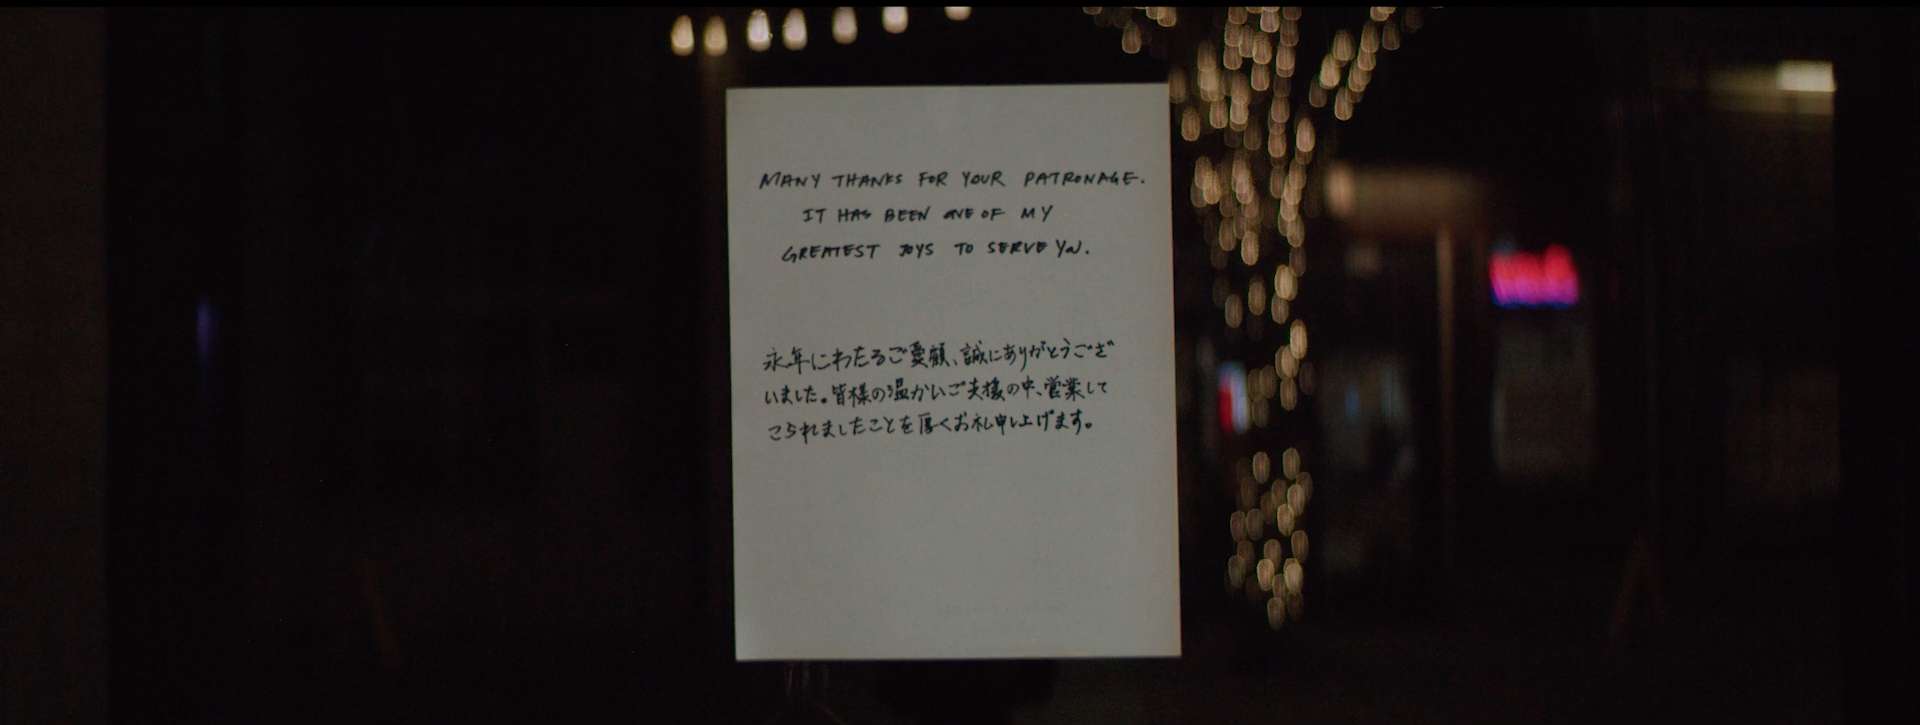 MANY THANKS FOR YOUR PATRONAGE.
IT HAS BEEN ONE OF MY
GREATEST JOYS TO SERVE YOU.
永年にわたるご愛顧、誠にありがとうござ
いました。皆様の温かいご支援の中、営業して
こられましたことを厚くお礼申し上げます。